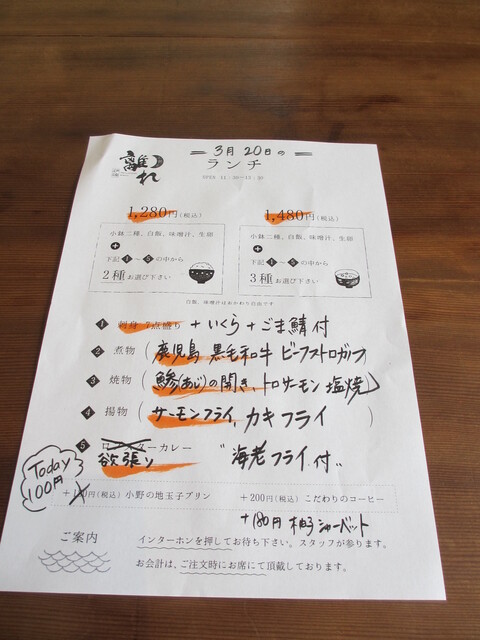 3月20日の
ランチ
離れ
1,280円(税込)
1,480円(税込)
小鉢二種、白飯、味噌汁、生卵
+
下記1~5の中から
2種お選び下さい
小鉢二種、白飯、味噌汁、生卵
+
下記1~5の中から
3種お選び下さい
白飯、味噌汁はおかわり自由です
1 刺身 7点盛り +いくら+ごま鯖付
2 煮物 (鹿児島 黒毛和牛 ビーフストロガノフ)
3 焼物 (鯵(あじ)の開き、トロサーモン塩焼)
4 揚物 (サーモンフライ, カキフライ )
5 カレー
欲張り "海老フライ付"
Today
100円
+150円(税込) 小野の地玉子プリン
+200円(税込) こだわりのコーヒー
+180円 柚子シャーベット
ご案内
インターホンを押してお待ち下さい。スタッフが参ります。
お会計は、ご注文時にお席にて頂戴しております。